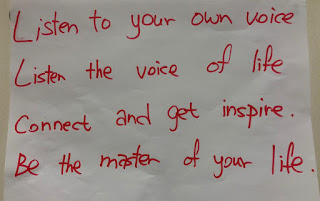 Listen to your own voice
Listen the voice of life
Connect and get inspire.
Be the master of your life.